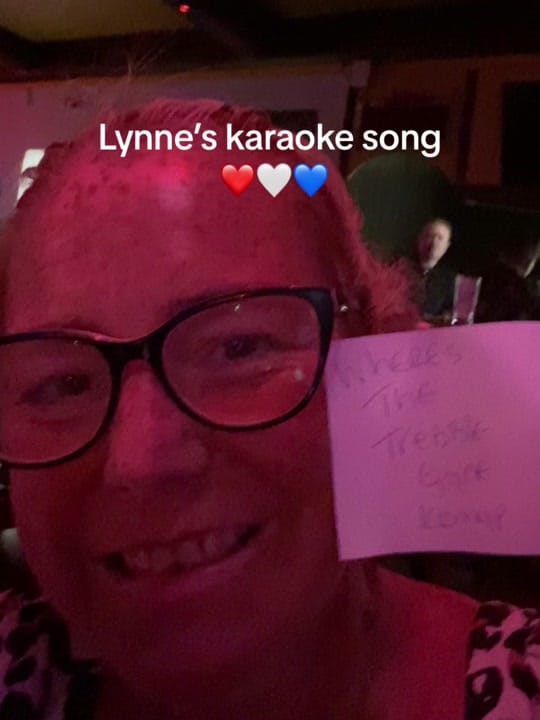 Lynne's karaoke song
❤️🤍💙
WHERE'S
THE
TREBLE
Gone